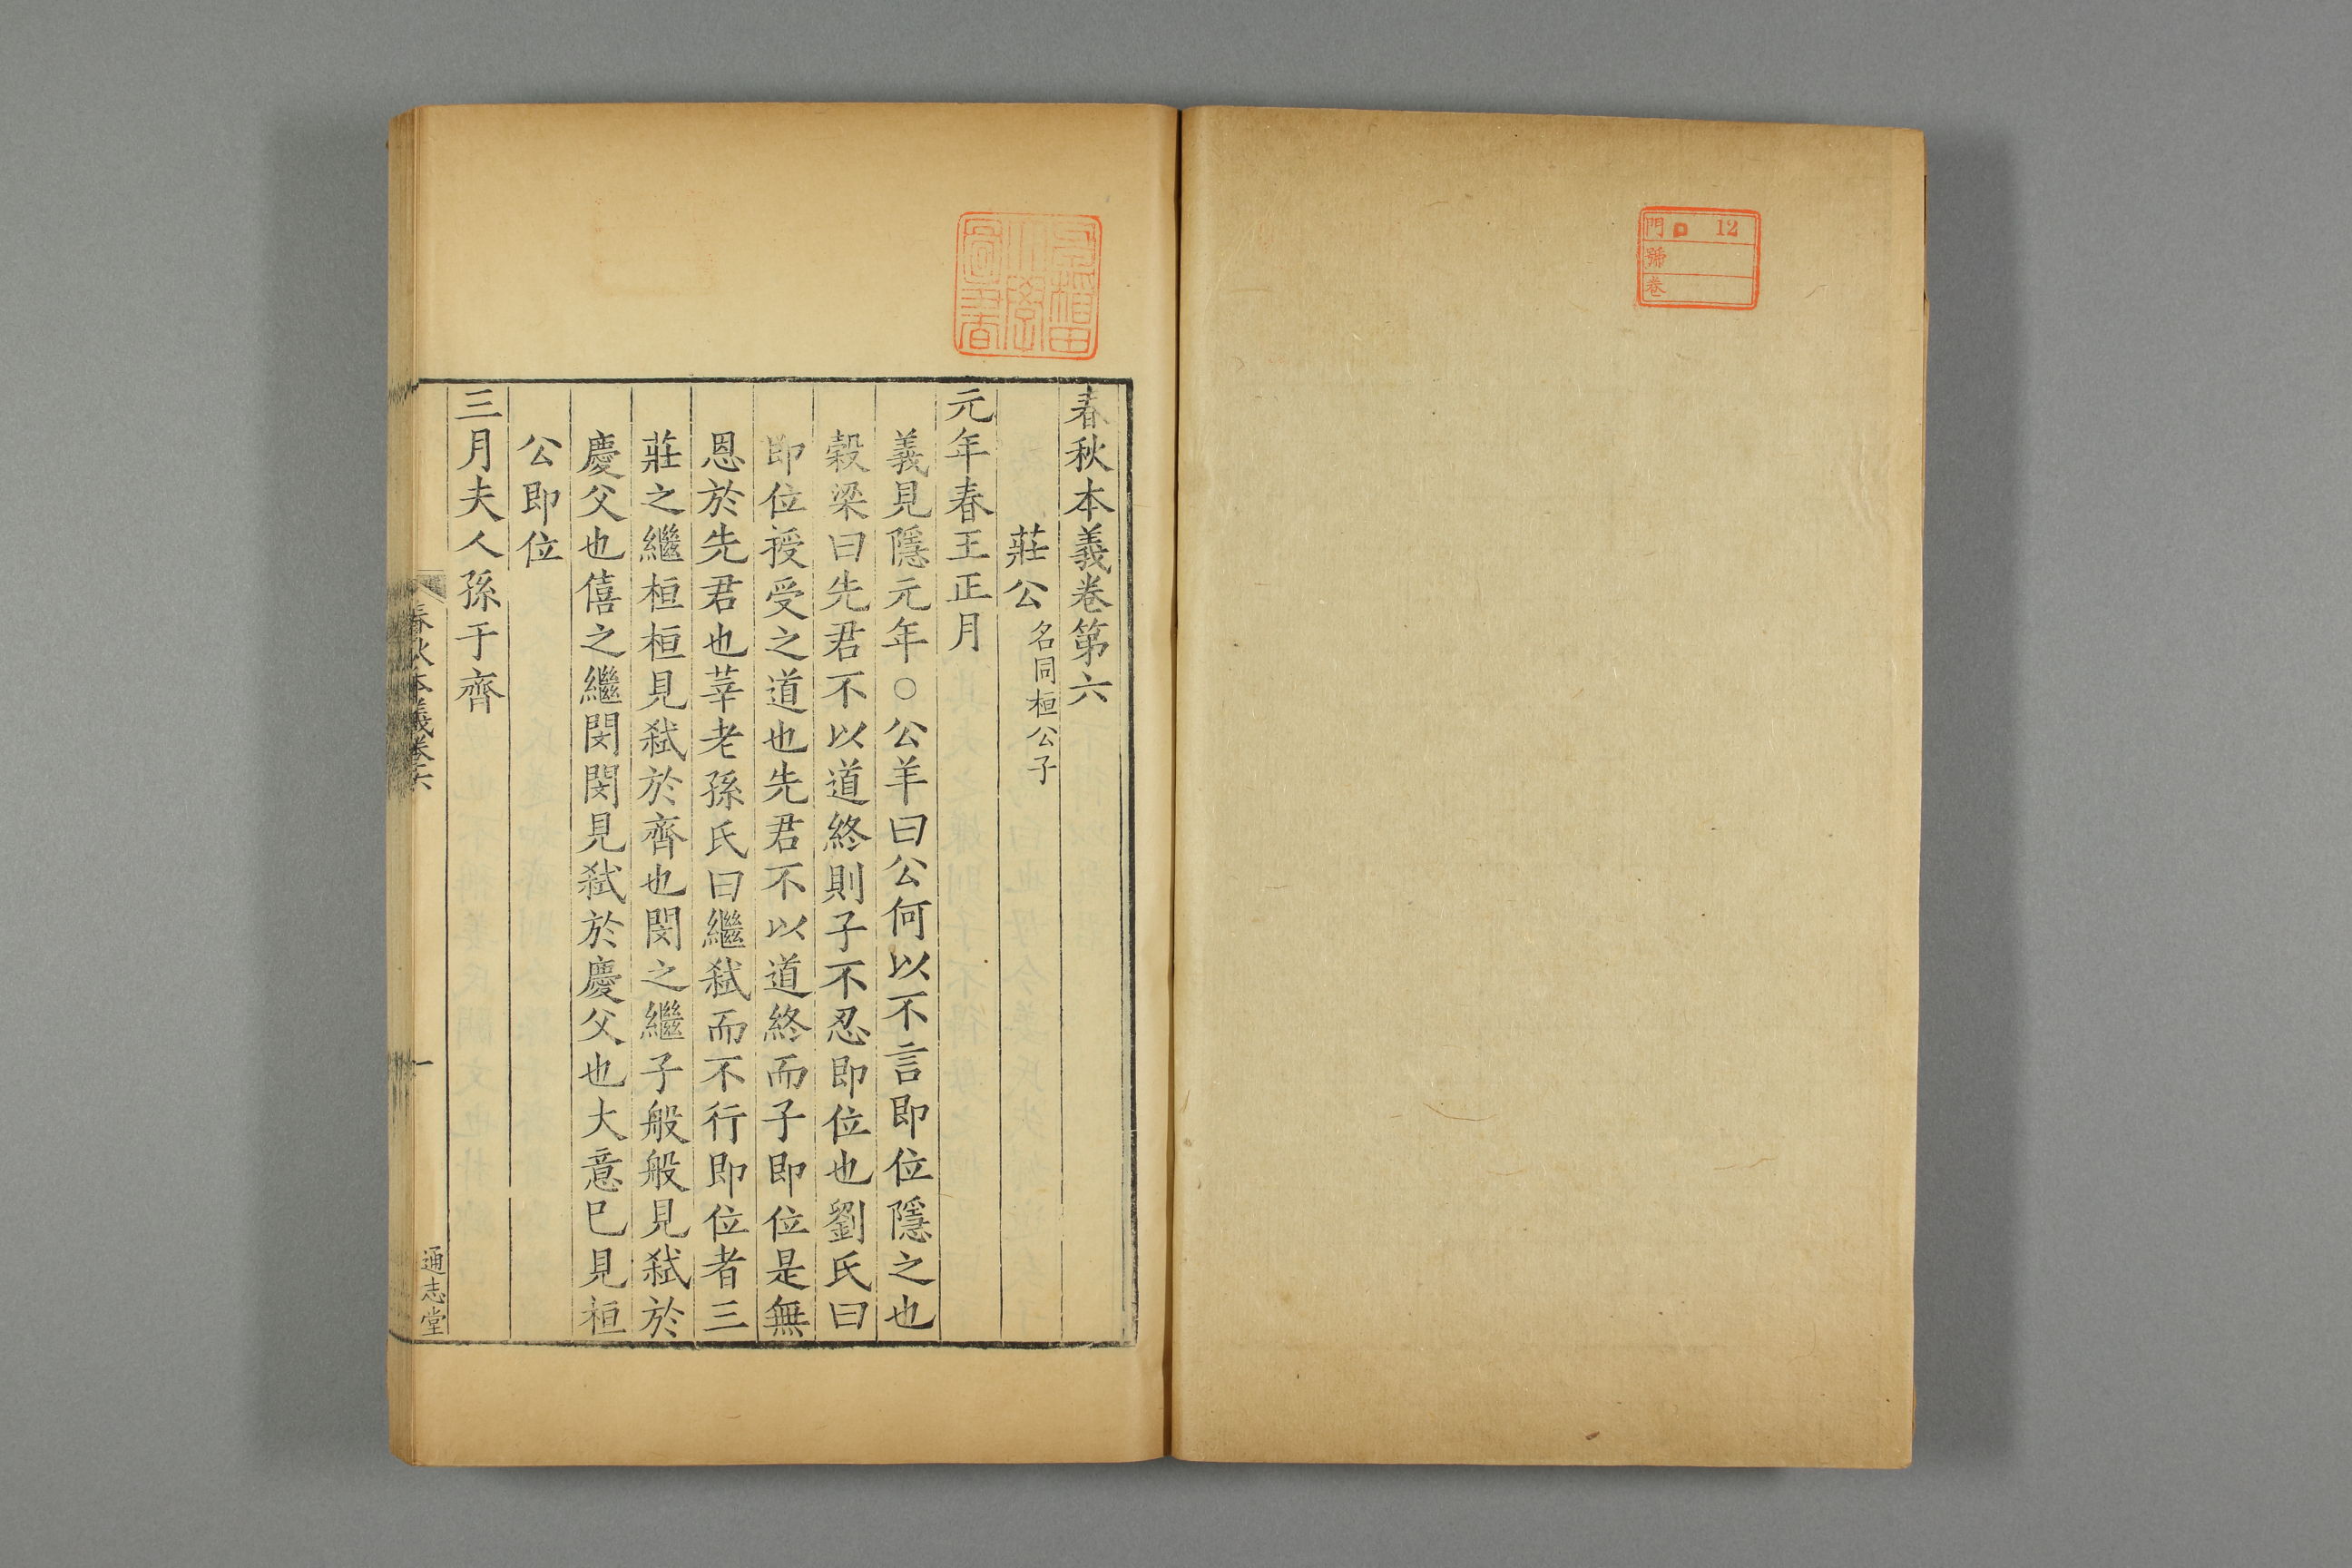 門 12
號
卷
早稲田
大學
圖書
春秋本義卷第六
莊公名同桓公子
元年春王正月
義見隱元年○公羊曰公何以不言即位隱之也
穀梁曰先君不以道終則子不忍即位也劉氏曰
即位授受之道也先君不以道終而子即位是無
恩於先君也莘老孫氏曰繼弑而不行即位者三
莊之繼桓桓見弑於齊也閔之繼子般般見弑於
慶父也僖之繼閔閔見弑於慶父也大意已見桓
公即位
三月夫人孫于齊
春秋本義卷六
一
通志堂